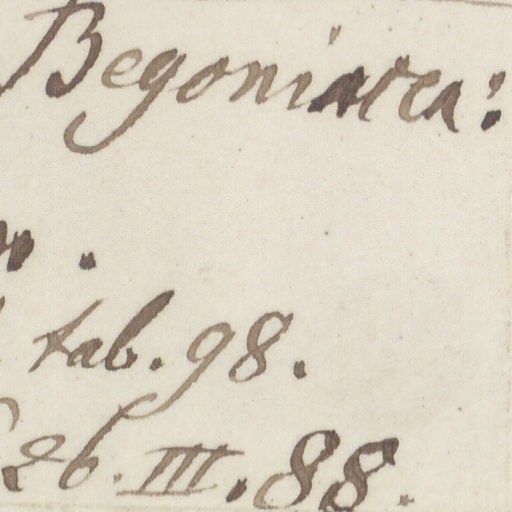 Begoniacea:
tab. 98.
26. III. 88.